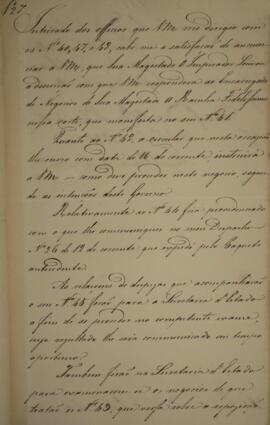 127
Inteirado dos officios que VM me dirigio com
os Nos 40, 47, e 48, cabe me a satisfação de annunciar
a VM, que Sua Magestade O Imperador Louvou
a discrição com que VM respondera ao Encarregado
de Negocios de Sua Magestade A Rainha Fidelissima
nessa corte, que manifesta no seu Nº 41.
Quanto ao Nº 42, a circular que nesta occasião
lhe envio com data de 16 do corrente instruirá
a VM como deve proceder neste negocio, segundo
as intenções deste Governo.
Relativamente ao Nº 44 fica providenciado
com o que lhe communiquei no meu Despacho
Nº 26 de 12 do corrente que expedi pelo Paquete
antecedente.
As relações de despezas que acompanharão
o seu Nº 45 forão para a Secretaria d'Estado
a fim de se proceder no competente exame,
cujo resultado lhe será communicado em tempo
opportuno.
Tambem ficão na Secretaria d'Estado
para examinarem-se os negocios de que
tratão os Nº 43, que versa sobre a